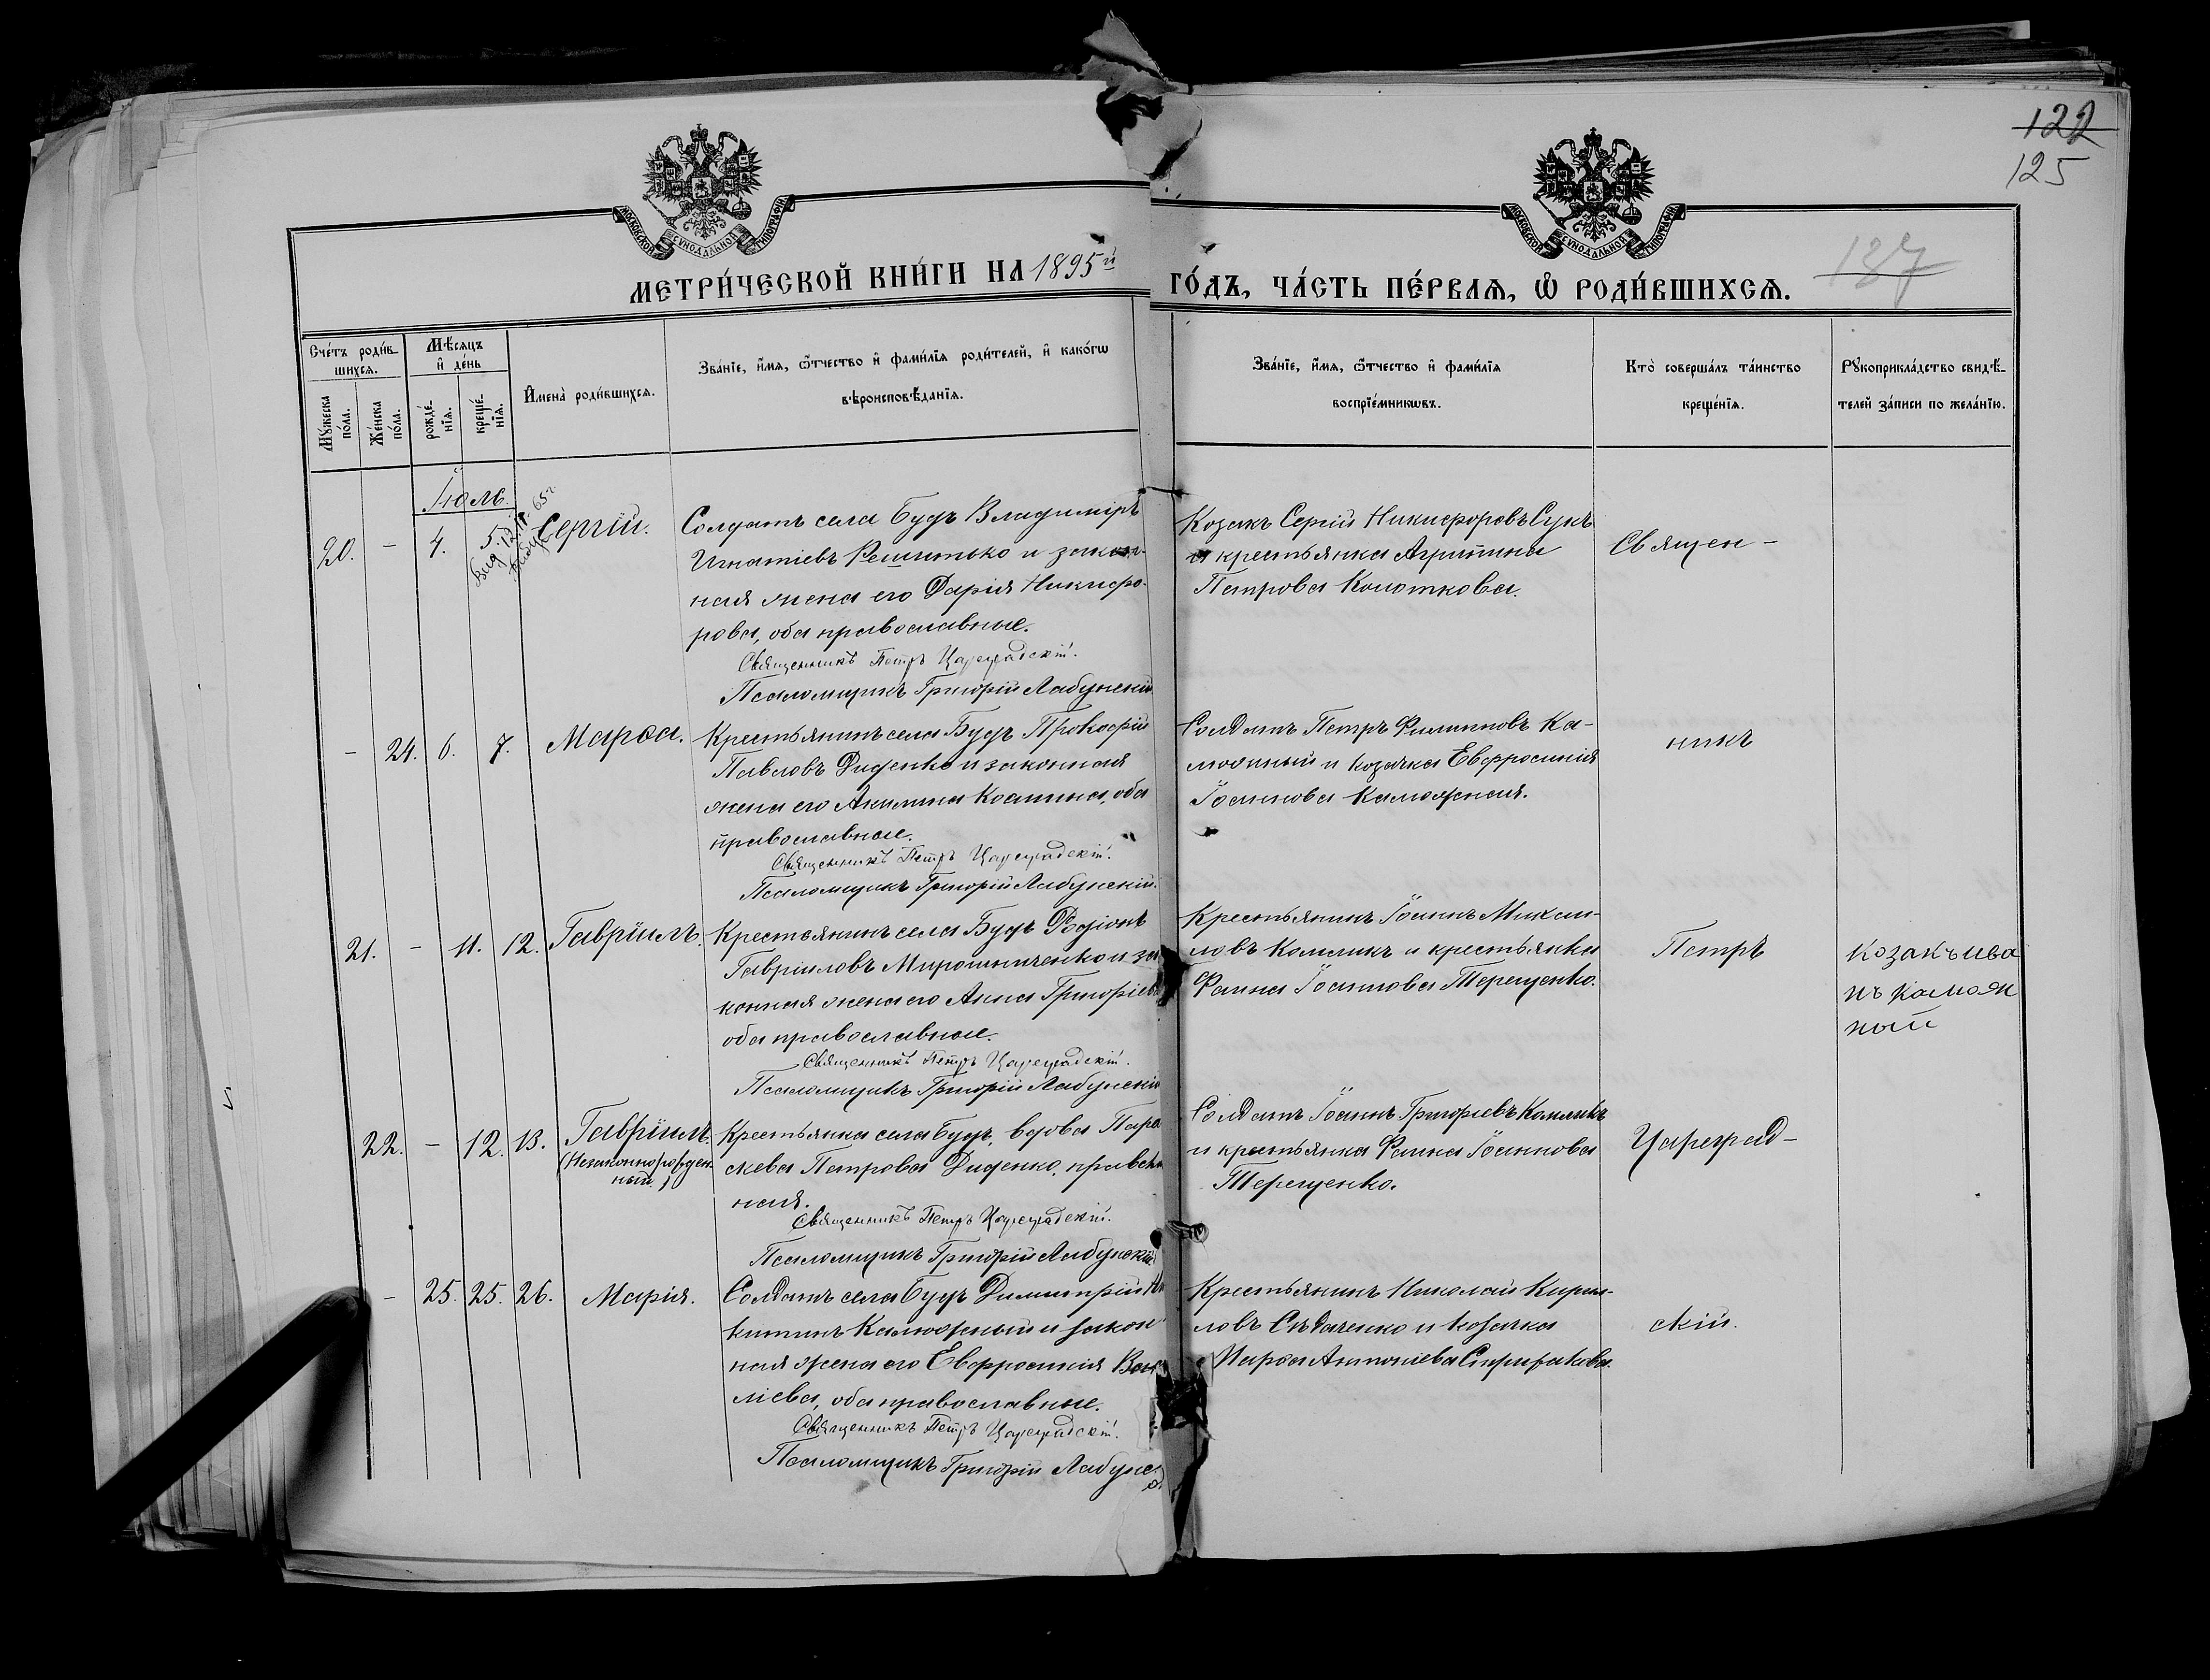 122
125
МОСКОВСКОЙ СУНОДАЛЬНОЙ ТИПОГРАФІИ
МОСКОВСКОЙ СУНОДАЛЬНОЙ ТИПОГРАФІИ
137
МЕТРИ́ЧЕСКОЙ КНИ́ГИ НА 1895й
ГО́ДЪ, ЧА́СТЬ ПЕ́РВАѦ, Ѡ РОДИ́ВШИХСѦ.
Сче́тъ роди́в-
шихсѧ.
Мꙋ́жеска
по́ла.
Же́нска
по́ла.
Мѣ́сѧцъ
и҆ де́нь
рожде́-
нїѧ.
креще́-
нїѧ.
И҆мена̀ роди́вшихсѧ.
Зва́нїе, и҆́мѧ, ѻ҆́тчество и҆ фами́лїѧ роди́телей, и҆ како́гѡ
вѣроисповѣ́данїѧ.
Зва́нїе, и҆́мѧ, ѻ҆́тчество и҆ фами́лїѧ
воспрїе́мникѡвъ.
Кто̀ соверша́лъ та́инство
креще́нїѧ.
Рꙋкоприкла́дство свидѣ́-
телей за́писи по жела́нїю.
Іюль.
20. - 4. 5. Сергій.
Солдатъ села Будъ Владиміръ
Игнатіевъ Решитько и закон-
ная жена его Дарія Никифо-
рова, оба православные.
Священникъ Петръ Цареградскій.
Псаломщикъ Григорій Лабунскій
Козакъ Сергій Никифоровъ Сукъ
и крестьянка Агрипина
Петрова Колоткова.
Священ-
- 24. 6. 7. Марѳа.
Крестьянинъ села Будъ Прокофій
Павловъ Диденко и законная
жена его Акилина Косьмина, оба
православные.
Священникъ Петръ Цареградскій.
Псаломщикъ Григорій Лабунскій.
Солдатъ Петръ Филиповъ Ка-
мояный и козачка Евфросинія
Іоаннова Каможная.
никъ
21. - 11. 12. Гавріилъ.
Крестьянинъ села Будъ Родіонъ
Гавріиловъ Мирошниченко и за
конная жена его Анна Григоріева
оба православные.
Священникъ Петръ Цареградскій.
Псаломщикъ Григорій Лабунскій
Крестьянинъ Іоаннъ Михаи-
ловъ Комликъ и крестьянка
Фаина Іоаннова Терещенко.
Петръ
козакъ ива
нъ камояж
ный
22. - 12. 13. Гавріилъ.
(Незаконнорожден
ный.)
Крестьянка села Будъ, вдова Пара
скева Петрова Диденко, правосла
ная.
Священникъ Петръ Цареградскій.
Псаломщикъ Григорій Лабунскій
Солдатъ Іоаннъ Григорьевъ Комликъ
и крестьянка Фаина Іоаннова
Терещенко.
Цареград-
- 25. 25. 26. Марія.
Солдатъ села Будъ Димитрій Ни
китинъ Каможный и закон
ная жена его Евфросинія Васи
ліева, оба православные.
Священникъ Петръ Цареградскій.
Псаломщикъ Григорій Лабунс.
Крестьянинъ Николай Кирил-
ловъ Сѣдаченко и козачка
Марѳа Антоніева
скій.